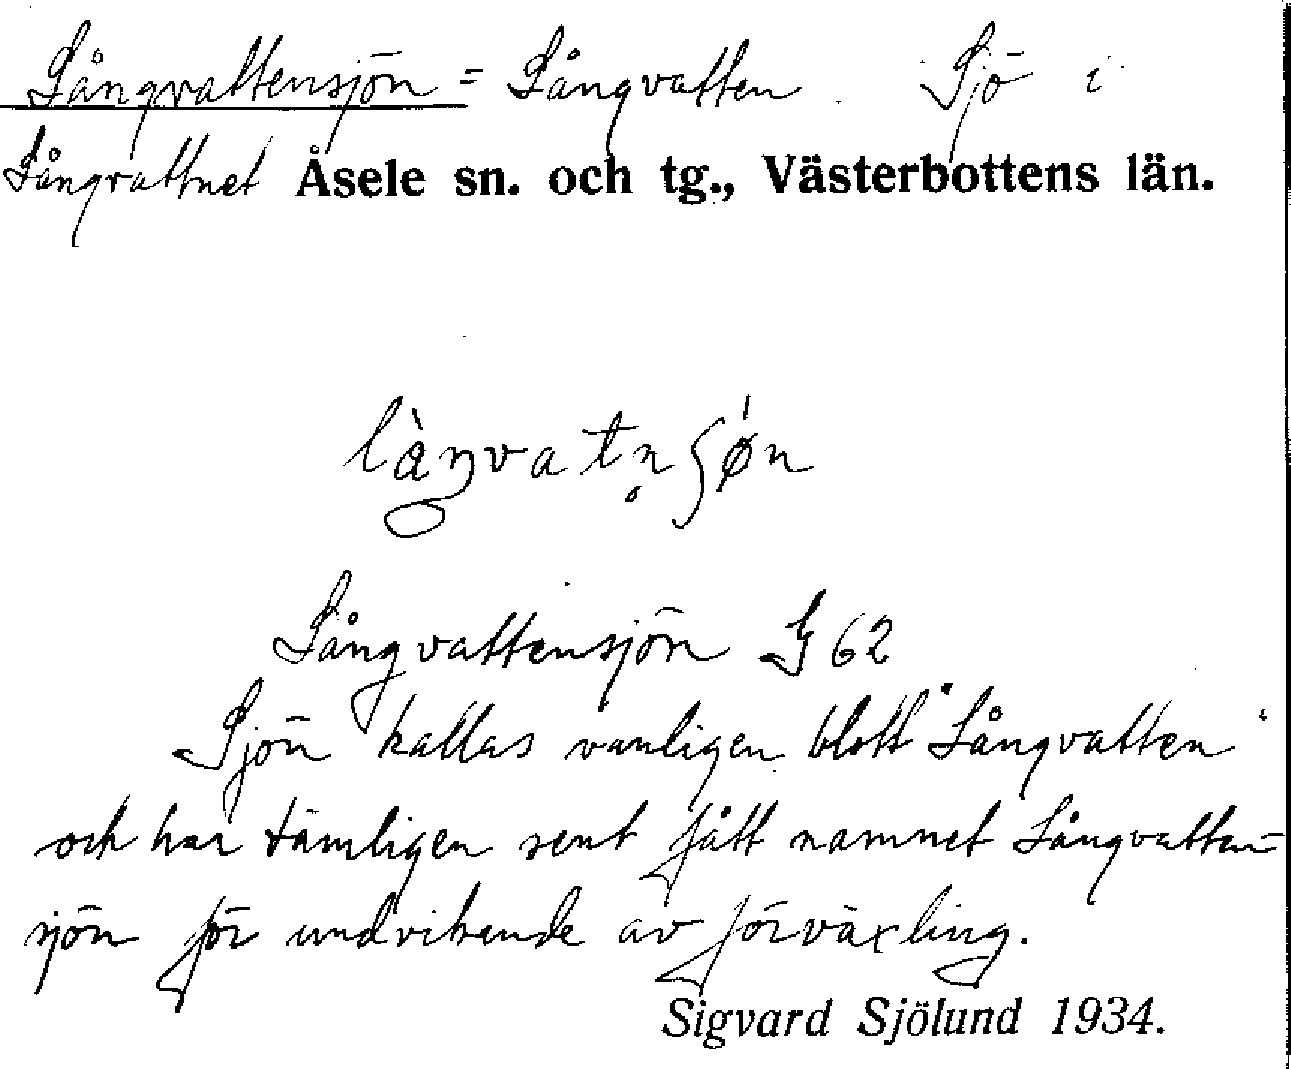 Långvattensjön = Långvatten. Sjö i
Långvattnet Åsele sn. och tg., Västerbottens län.
làŋvatn̥ʃǿn
Långvattensjön G 62
Sjön kallas vanligen blott "Långvatten"
och har tämligen sent fått namnet Långvatten-
sjön för undvikande av förväxling.
Sigvard Sjölund 1934.